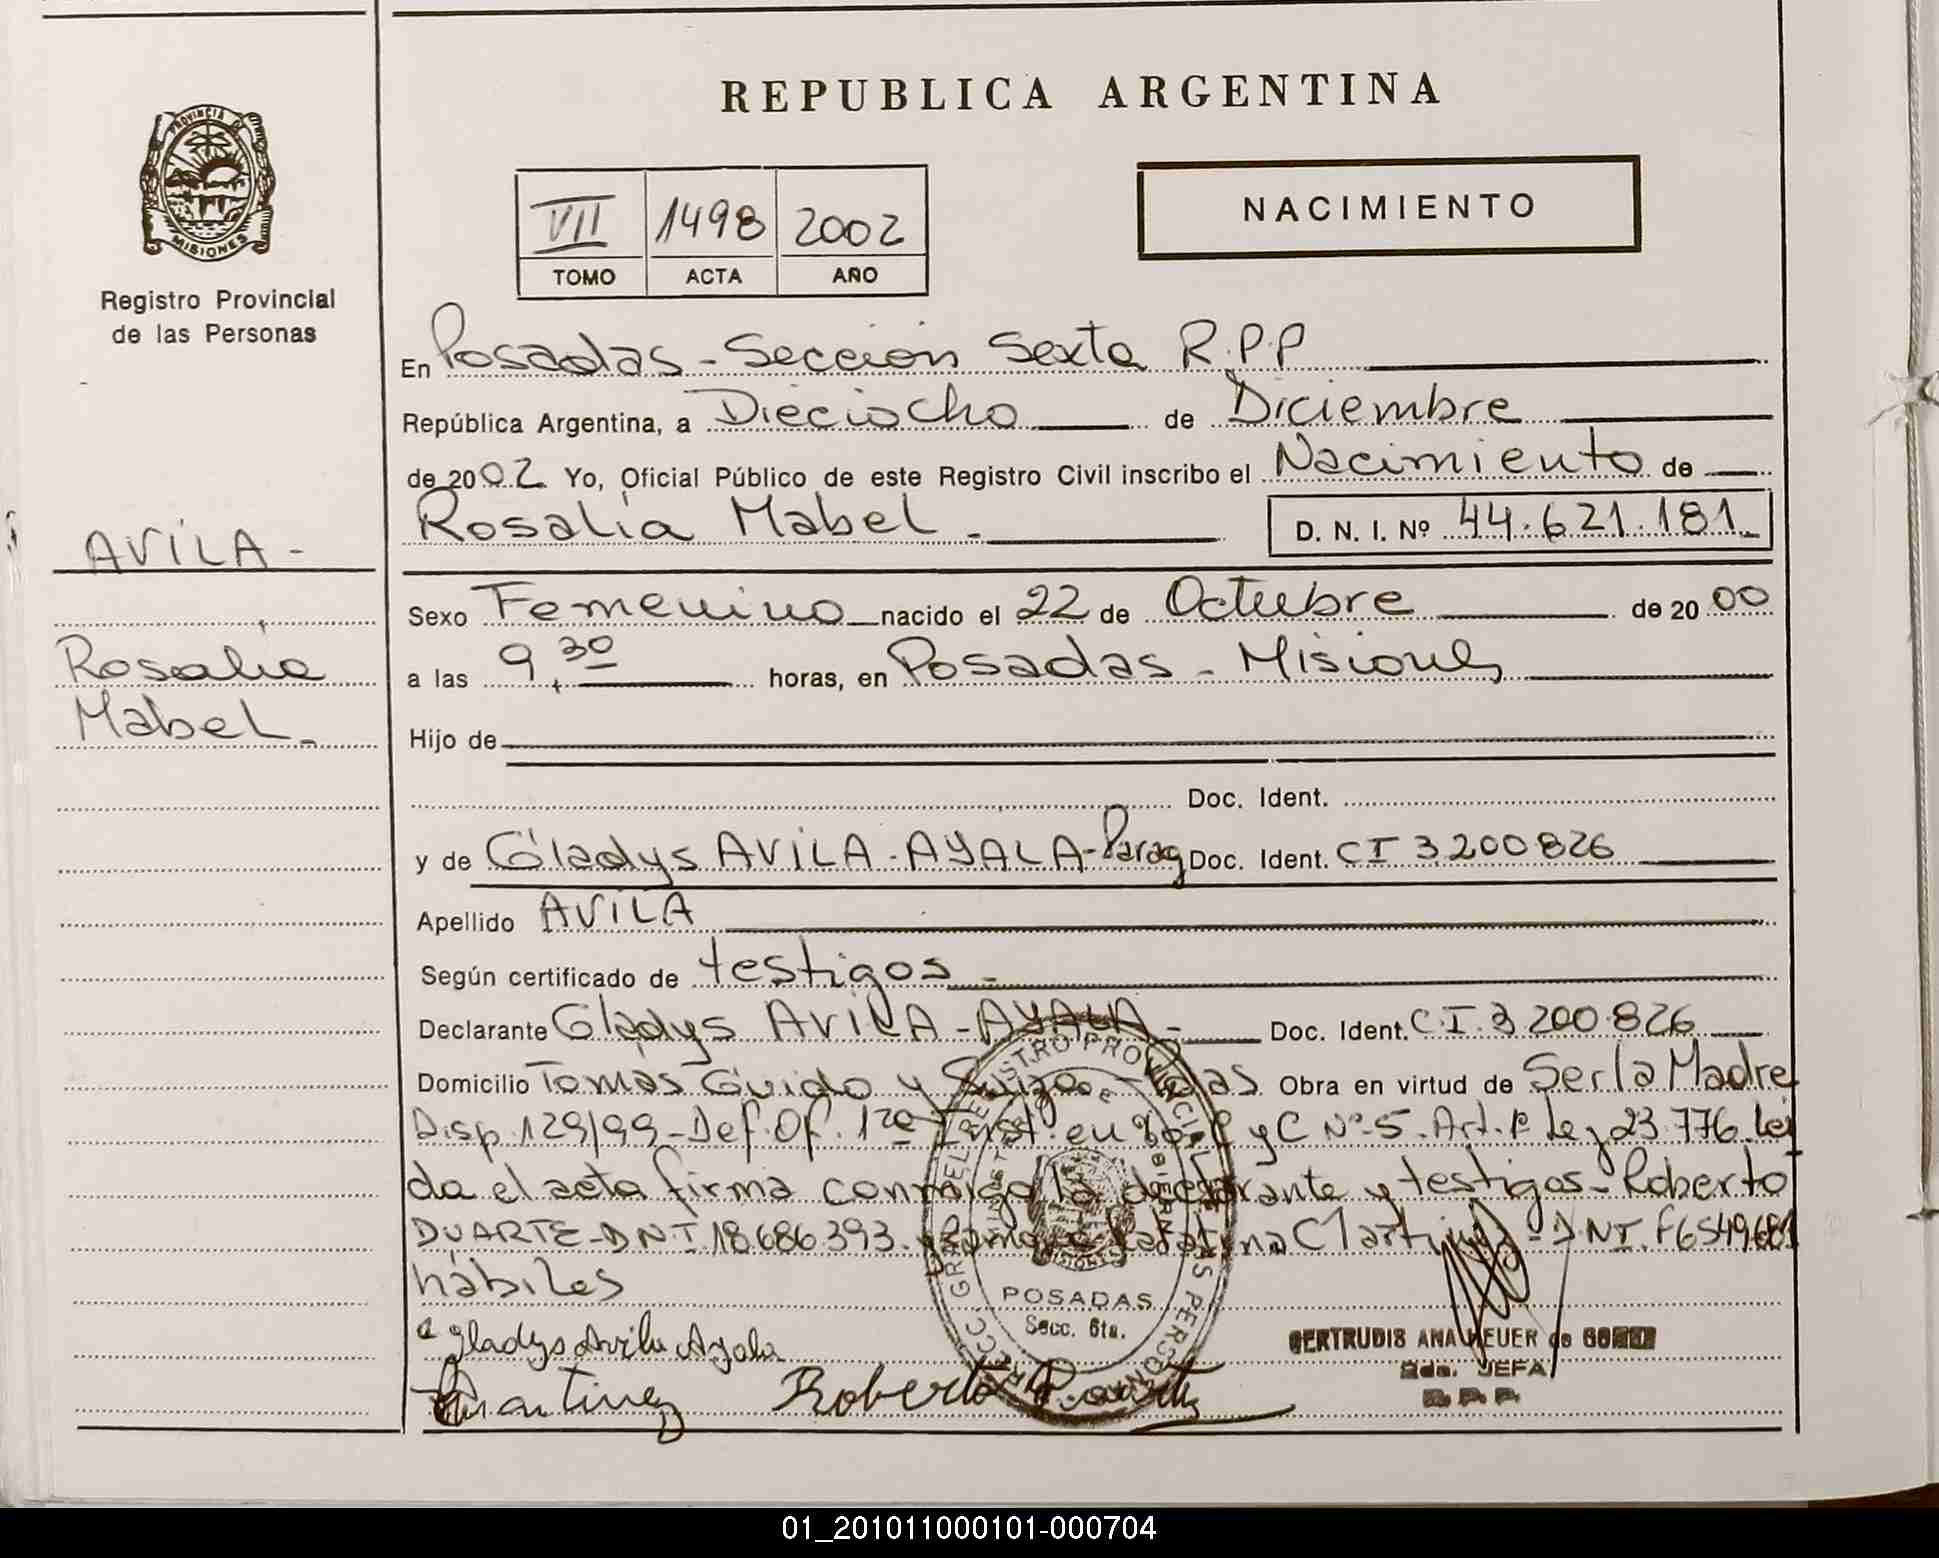 REPUBLICA ARGENTINA
PROVINCIA DE
MISIONES
Registro Provincial
de las Personas
VII 1498 2002
TOMO ACTA AÑO
NACIMIENTO
En Posadas - Sección Sexta R.P.P
República Argentina, a Dieciocho de Diciembre
de 2002 Yo, Oficial Público de este Registro Civil inscribo el Nacimiento de
Rosalía Mabel - D. N. I. Nº 44.621.181
AVILA -
Rosalía
Mabel -
Sexo Femenino nacido el 22 de Octubre de 2000
a las 9,30 horas, en Posadas - Misiones
Hijo de
Doc. Ident.
y de Gladys AVILA - AYALA - Parag Doc. Ident. CI 3.200.826
Apellido AVILA
Según certificado de testigos -
Declarante Gladys AVILA - AYALA - Doc. Ident. C.I. 3.200.826
Domicilio Tomas Guido y Obra en virtud de Ser la Madre
Disp. 129/99 - Def. Of. 1ra Inst. en y C Nº 5. Art. Ley 23.776. Lei
da el acta firma conmigo la declarante y testigos - Roberto
DUARTE - DNI 18.686.393. y Catalina Martinez - DNI. F6549681
hábiles
Gladys Avila Ayala
Martinez Roberto Duarte
POSADAS
Secc. 6ta.
GERTRUDIS ANA HEUER de
JEFA
01_201011000101-000704